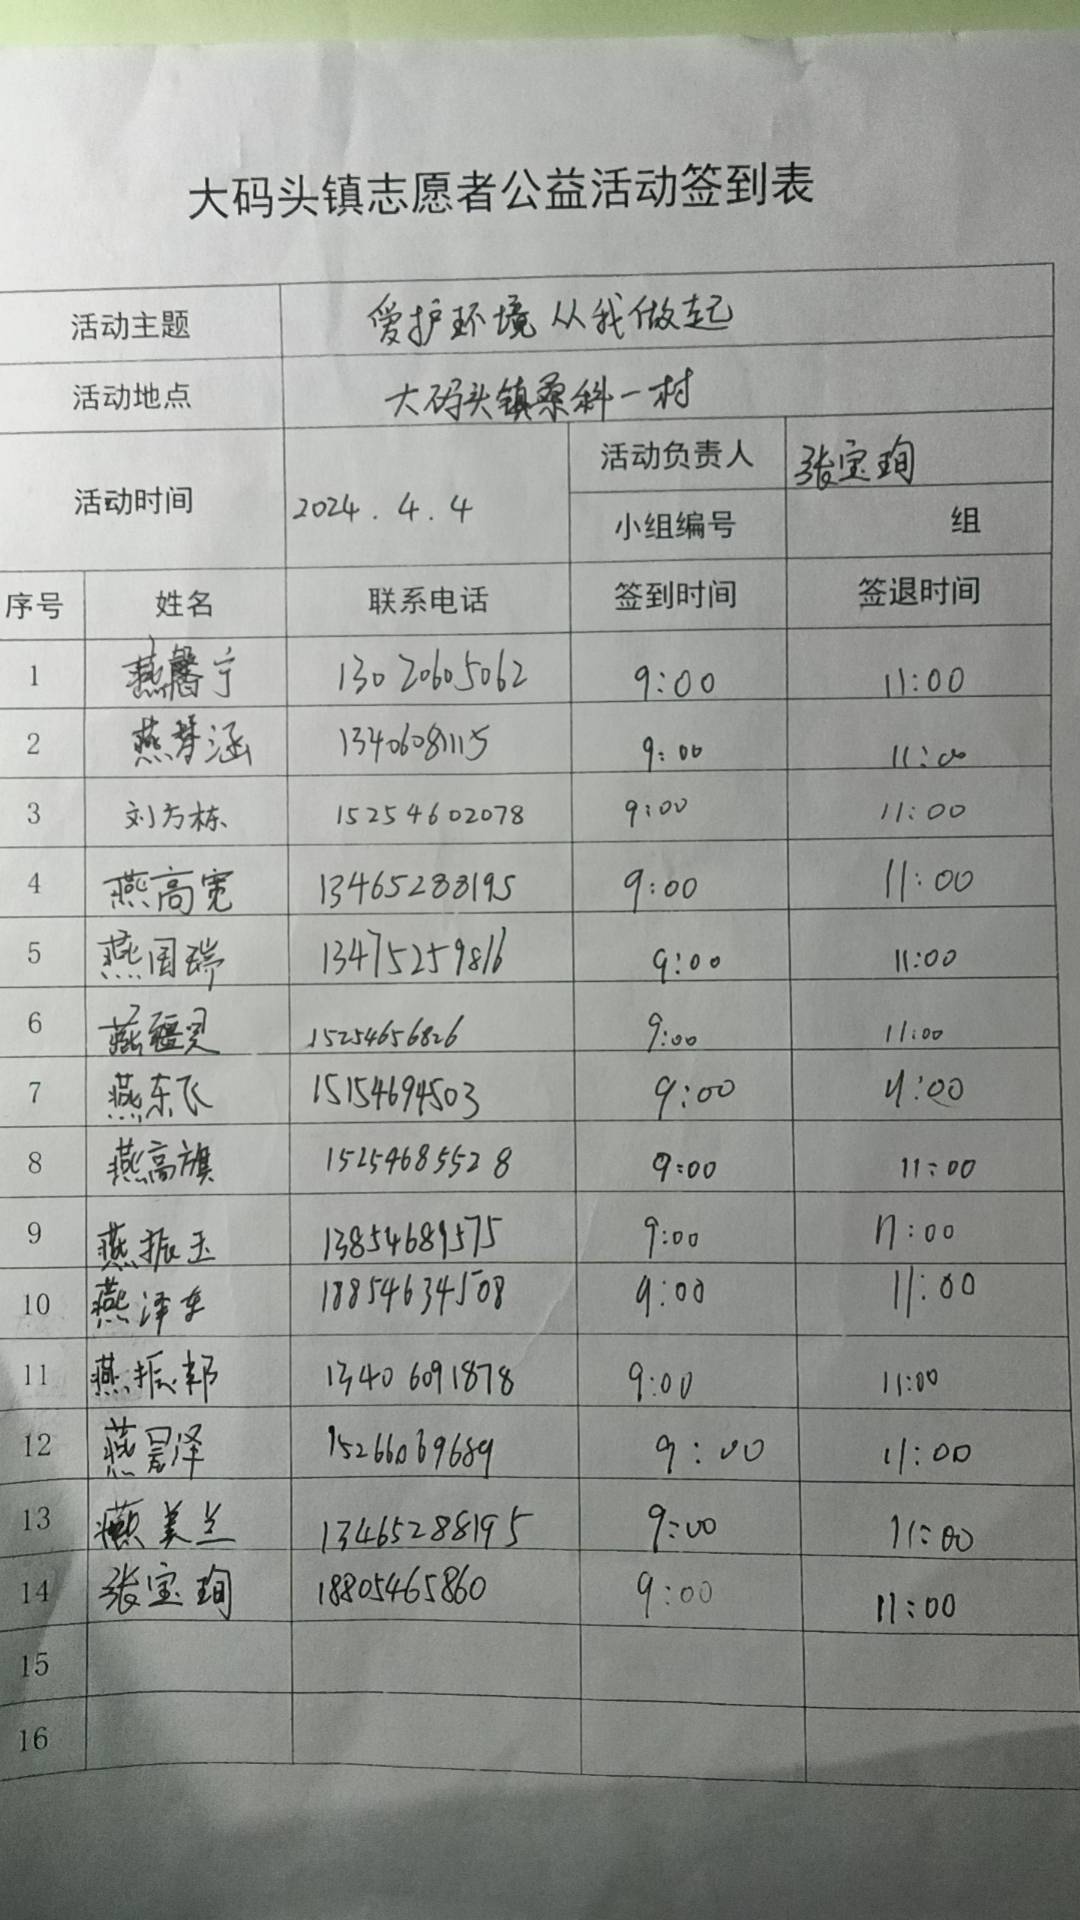 大码头镇志愿者公益活动签到表
活动主题 爱护环境 从我做起
活动地点 大码头镇桑科一村
活动时间 2024.4.4 活动负责人 张宝珣
小组编号 组
序号 姓名 联系电话 签到时间 签退时间
1 燕馨宁 13020605062 9:00 11:00
2 燕梦涵 13406081115 9:00 11:00
3 刘方栋 15254602078 9:00 11:00
4 燕高宽 13465288195 9:00 11:00
5 燕国瑞 13475259816 9:00 11:00
6 燕疆灵 15254656826 9:00 11:00
7 燕东飞 15154694503 9:00 11:00
8 燕高旗 15254685528 9:00 11:00
9 燕振玉 13854689575 9:00 11:00
10 燕泽东 18854634508 9:00 11:00
11 燕振邦 13406091878 9:00 11:00
12 燕昊泽 15266069689 9:00 11:00
13 美兰 13465288195 9:00 11:00
14 张宝珣 18805465860 9:00 11:00
15
16